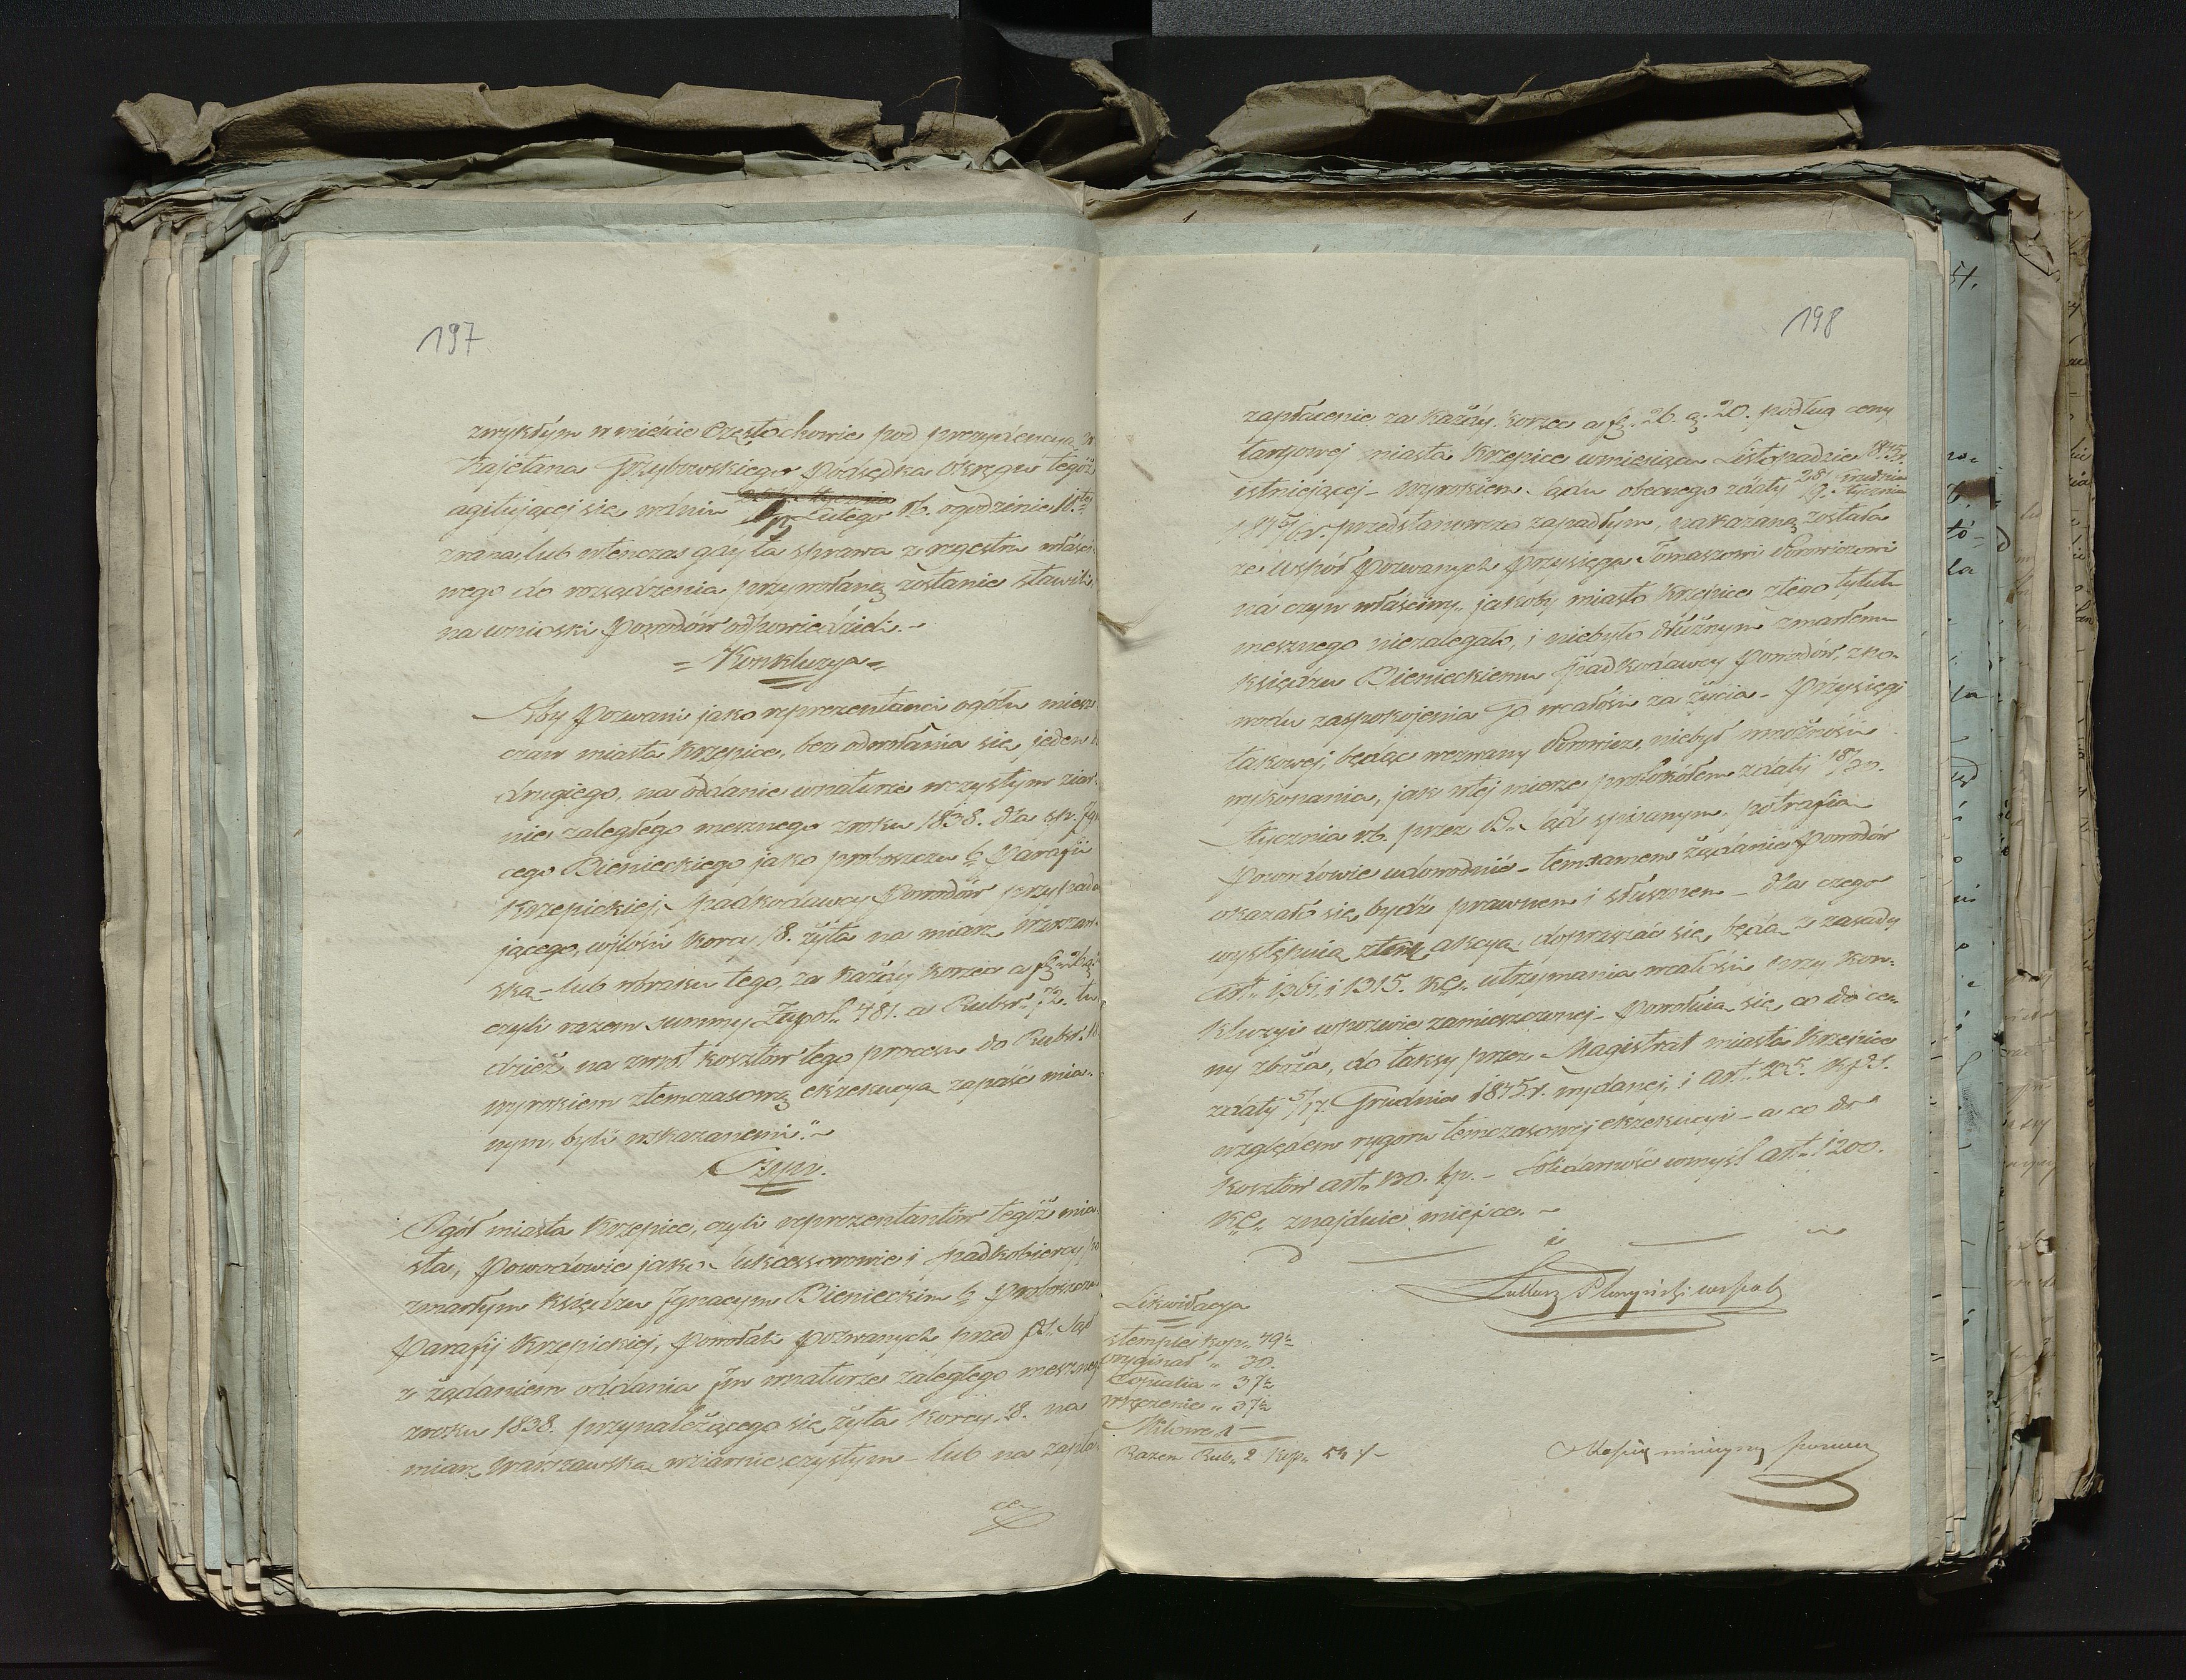 197
zwykłym w mieście Częstochowie pod prezydencyą
Kajetana Grzybowskiego Podsędka Okręgu tegoż
agitującej się w dniu Lutego r.b. o godzinie 10tej
zrana, lub wtenczas gdy ta sprawa z regestru właści
wego do rozsądzenia przywołaną zostanie stawili
na wnioski Powodów odpowiedzieli.
= Konkluzya =
Aby Pozwani jako reprezentanci ogółu miesz
czan miasta Krzepice, bez odwołania się jeden
drugiego, na oddanie w naturze w czystym ziar
nie zaległego mesznego z roku 1838. dla śp. Ig
cego Bienieckiego jako proboszcza b. Parafii
Krzepickiej, spadkodawcy Powodów przypada
jącego, w ilości korcy 18. żyta na miarę warszaw
ską - lub w braku tego, za każdy korzec a
czyli razem summy Złpol. 481. a Rubsr. 72. tu
dzież na zwrot kosztów tego procesu do Rubsr.
wyrokiem z temczasową exekucyą zapaść mia-
nym, byli wskazanemi.
Czyn.
Ogół miasta Krzepice, czyli reprezentantów tegoż mia
sta, Powodowie jako sukcessorowie i spadkobiercy po
zmarłym księdzu Ignacym Bienieckim b. Proboszczu
Parafij Krzepickiej, powołali pozwanych przed Sąd
z żądaniem oddania im w naturze zaległego meszneg
z roku 1838. przynależącego się żyta korcy 18. na
miarę Warszawską w ziarnie czystym - lub na zapła
198
zapłacenie za każdy korzec a 26. g. 20. podług ceny
targowej miasta Krzepice w miesiącu Listopadzie 1845r.
istniejącej - wyrokiem Sądu obecnego z daty 28 Grudnia 9. Stycznia
przedstanowczo zapadłym, nakazaną została
ze współ Pozwanych przysięga Tomaszowi
na czyn właściwy, jakoby miasto Krzepice z tego tytułu
mesznego niezalegało, i niebyło dłużnym zmarłemu
księdzu Bienieckiemu spadkodawcy Powodów, z po-
wodu zaspokojenia go w całości za życia - Przysięgi
takowej, będąc wezwany niebył w możności
wykonania, jak w tej mierze protokółem z daty 18/30.
Stycznia r.b. przez Sąd spisanym, potrafią
Powodowie udowodnić - temsamem żądanie Powodów
okazało się bydź prawnem i słusznem - dla czego
wystąpią z tem akcyą, dopraszać się będą z zasady
art. 1361. i 1315. KC. utrzymania w całości przy kon-
kluzyi w pozwie zamieszczonej - Powołują się co do ce-
ny zboża, do taksy przez Magistrat miasta Krzepice
z daty 5/17. Grudnia 1845r. wydanej, i art. 205. KPS.
względem rygoru temczasowej exekucyi - a co do
kosztów art. 130. kp. - Solidarność w myśl art. 1200.
KC. znajduie miejsce.
Likwidacya
stemple kop. 79½
oryginał " 30.
Kopialia " 37½
wręczenie " 37½
Milowe
Razem Rub. 2 kop.